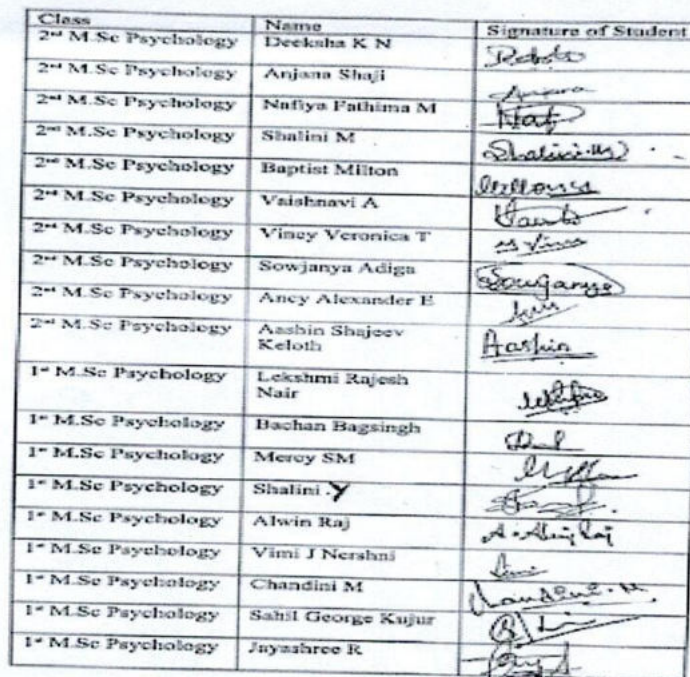 Class Name Signature of Student
2nd M.Sc Psychology Deeksha K N
2nd M.Sc Psychology Anjana Shaji Anjana
2nd M.Sc Psychology Nafiya Fathima M Naf
2nd M.Sc Psychology Shalini M Shalini.M
2nd M.Sc Psychology Baptist Milton
2nd M.Sc Psychology Vaishnavi A
2nd M.Sc Psychology Vincy Veronica T
2nd M.Sc Psychology Sowjanya Adiga
2nd M.Sc Psychology Ancy Alexander E
2nd M.Sc Psychology Aashin Shajeev Aashin
Keloth
1st M.Sc Psychology Lekshmi Rajesh
Nair
1st M.Sc Psychology Bachan Bagsingh
1st M.Sc Psychology Mercy SM
1st M.Sc Psychology Shalini .Y
1st M.Sc Psychology Alwin Raj
1st M.Sc Psychology Vimi J Nershni
1st M.Sc Psychology Chandini M
1st M.Sc Psychology Sahil George Kujur
1st M.Sc Psychology Jayashree R